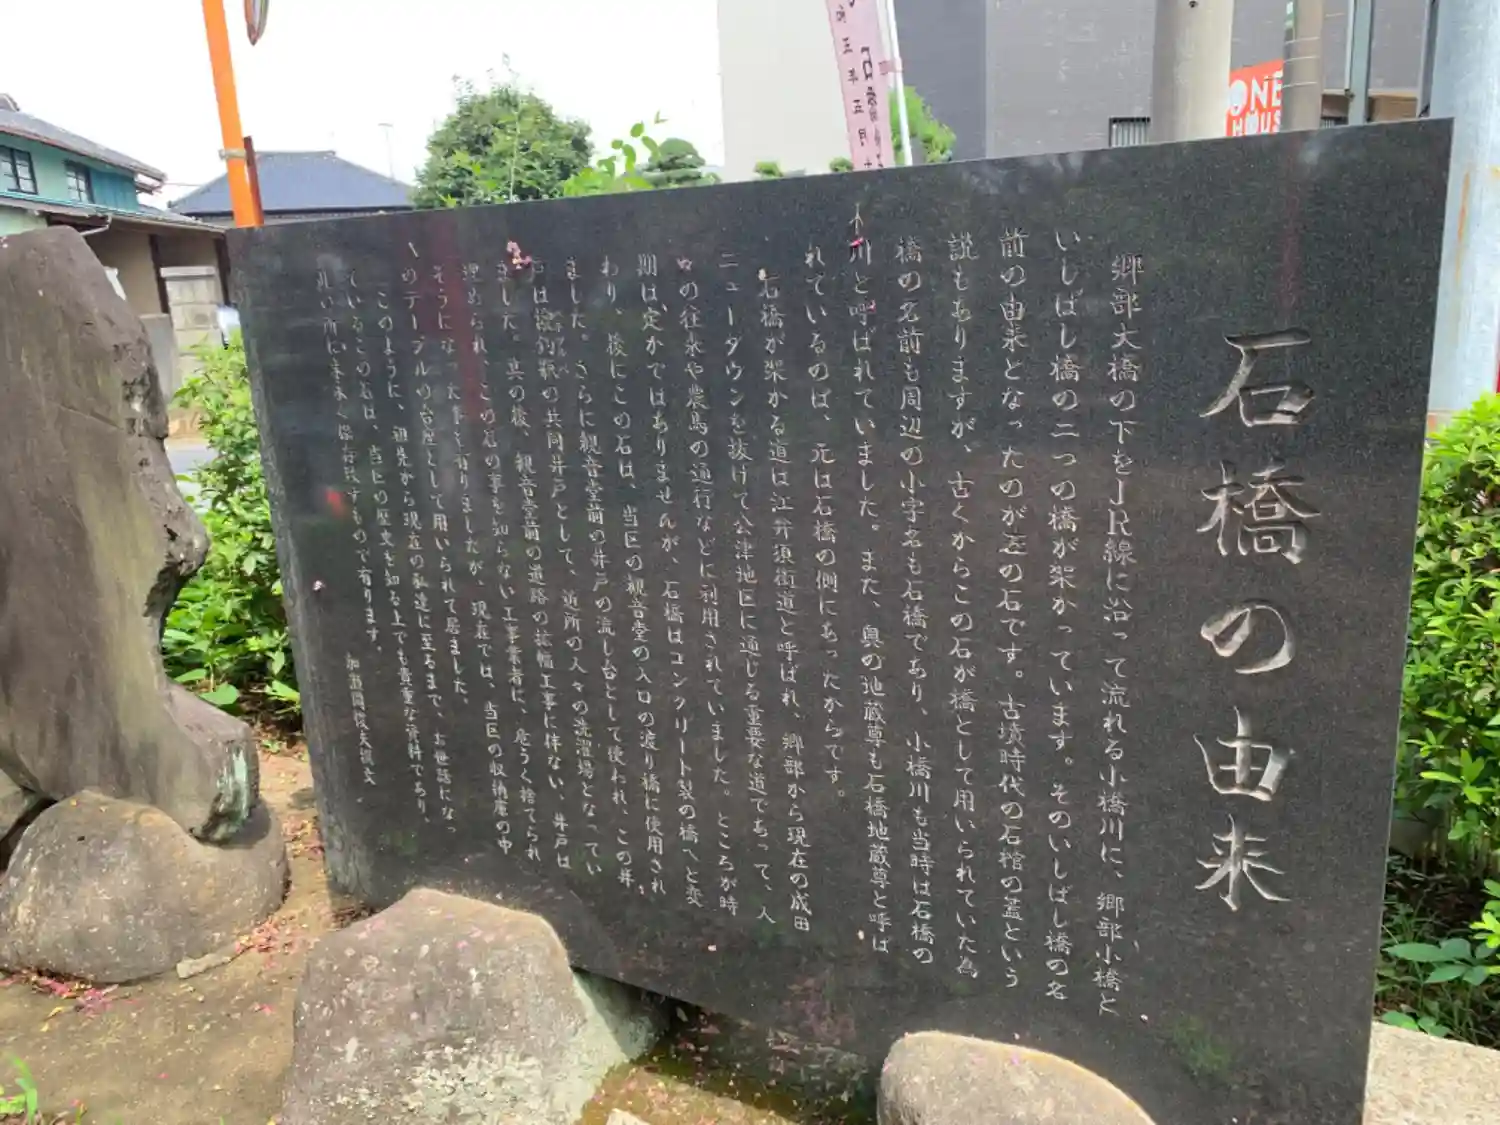 石橋の由来
郷部大橋の下をJR線に沿って流れる小橋川に、郷部小橋と
いしばし橋の二つの橋が架かっています。そのいしばし橋の名
前の由来となったのが左の石です。古墳時代の石棺の蓋という
説もありますが、古くからこの石が橋として用いられていた為
橋の名前も周辺の小字名も石橋であり、小橋川も当時は石橋の
川と呼ばれていました。また、奥の地蔵尊も石橋地蔵尊と呼ば
れているのは、元は石橋の側にあったからです。
石橋が架かる道は江弁須街道と呼ばれ、郷部から現在の成田
ニュータウンを抜けて公津地区に通じる重要な道であって、人
々の往来や農馬の通行などに利用されていました。ところが時
期は、定かではありませんが、石橋はコンクリート製の橋へと変
わり、後にこの石は、当区の観音堂の入口の渡り橋に使用され
ました。さらに観音堂前の井戸の流し台として使われ、この井
戸は の共同井戸として、近所の人々の洗濯場となってい
ました。其の後、観音堂前の道路の拡幅工事に伴ない、井戸は
埋められ、この石の事を知らない工事業者に、危うく捨てられ
そうになった事も有りましたが、現在では、当区の収納庫の中
のテーブルの台座として用いられて居ました。
このように、祖先から現在の私達に至るまで、お世話になっ
ているこの石は、当区の歴史を知る上でも貴重な資料であり、
するもので有ります。
ONE
HOUS